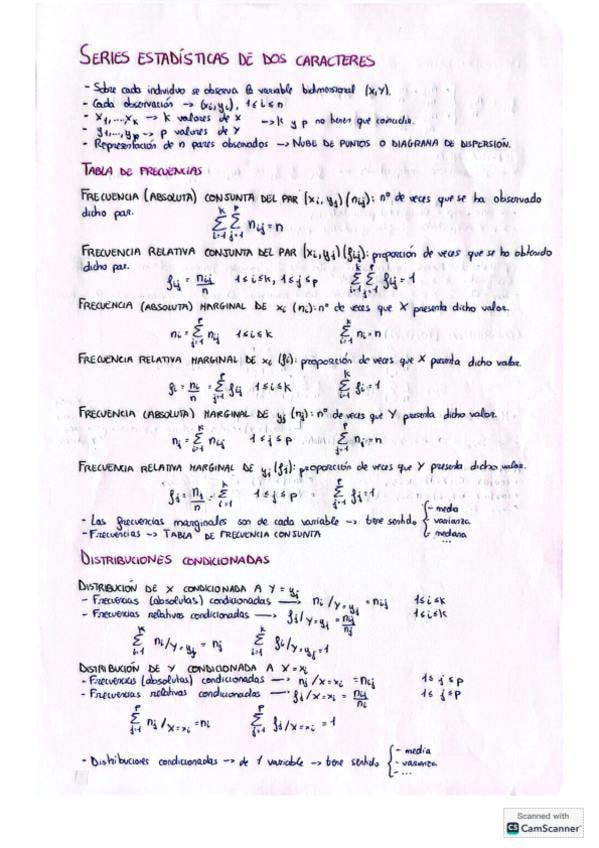 SERIES ESTADÍSTICAS DE DOS CARACTERES
- Sobre cada individuo se observa la variable bidimensional (X,Y).
- Cada observación → (xi,yi), 1≤i≤n
- x1,...,xk → k valores de X → k y p no tienen que coincidir.
- y1,...,yp → p valores de Y
- Representación de n pares observados → NUBE DE PUNTOS O DIAGRAMA DE DISPERSIÓN.
TABLA DE FRECUENCIAS
FRECUENCIA (ABSOLUTA) CONJUNTA DEL PAR (xi,yj)(nij): nº de veces que se ha observado
dicho par.
∑_{i=1}^{k} ∑_{j=1}^{p} nij = n
FRECUENCIA RELATIVA CONJUNTA DEL PAR (xi,yj)(fij): proporción de veces que se ha obtenido
dicho par.
fij = nij/n 1≤i≤k, 1≤j≤p ∑_{i=1}^{k} ∑_{j=1}^{p} fij = 1
FRECUENCIA (ABSOLUTA) MARGINAL DE xi (ni): nº de veces que X presenta dicho valor.
ni = ∑_{j=1}^{p} nij 1≤i≤k ∑_{i=1}^{k} ni = n
FRECUENCIA RELATIVA MARGINAL DE xi (fi): proporción de veces que X presenta dicho valor.
fi = ni/n = ∑_{j=1}^{p} fij 1≤i≤k ∑_{i=1}^{k} fi = 1
FRECUENCIA (ABSOLUTA) MARGINAL DE yj (nj): nº de veces que Y presenta dicho valor.
nj = ∑_{i=1}^{k} nij 1≤j≤p ∑_{j=1}^{p} nj = n
FRECUENCIA RELATIVA MARGINAL DE yj (fj): proporción de veces que Y presenta dicho valor.
fj = nj/n = ∑_{i=1}^{k} 1≤j≤p ∑_{j=1}^{p} fj = 1
- Las frecuencias marginales son de cada variable → tiene sentido { - media
- varianza
- mediana
...
- Frecuencias → TABLA DE FRECUENCIA CONJUNTA
DISTRIBUCIONES CONDICIONADAS
DISTRIBUCIÓN DE X CONDICIONADA A Y = yj
- Frecuencias (absolutas) condicionadas → ni/Y=yj = nij 1≤i≤k
- Frecuencias relativas condicionadas → fi/Y=yj = nij/nj
∑_{i=1}^{k} ni/Y=yj = nj ∑_{i=1}^{k} fi/Y=yj = 1
DISTRIBUCIÓN DE Y CONDICIONADA A X=xi
- Frecuencias (absolutas) condicionadas → nj/X=xi = nij 1≤j≤p
- Frecuencias relativas condicionadas → fj/X=xi = nij/ni 1≤j≤p
∑_{j=1}^{p} nj/X=xi = ni ∑_{j=1}^{p} fj/X=xi = 1
- Distribuciones condicionadas → de 1 variable → tiene sentido { - media
- varianza
- ...
Scanned with
CS CamScanner